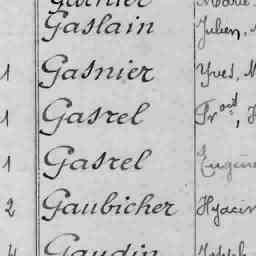 Garnier Marie
Gaslain Julien,
1 Gasnier Yves, M
1 Gasrel Frçois, H
1 Gasrel Eugène
2 Gaubicher Hyacin
4 Gaudin Joseph